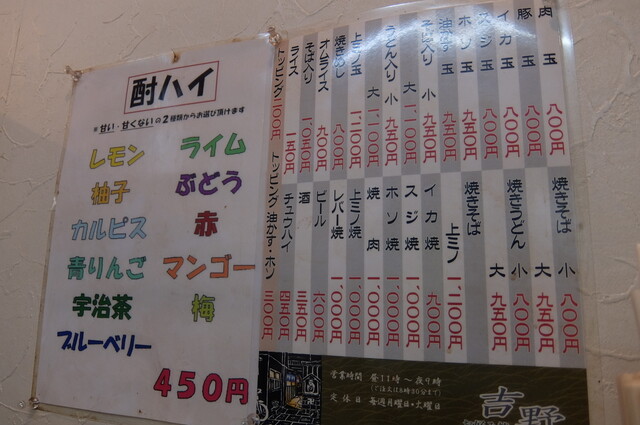 酎ハイ
※甘い・甘くないの2種類からお選び頂けます
レモン
ライム
柚子
ぶどう
カルピス
赤
青りんご
マンゴー
宇治茶
梅
ブルーベリー
450円
肉玉 八〇〇円
豚玉 八〇〇円
イカ玉 八〇〇円
スジ玉 八〇〇円
ホソ玉 九五〇円
油かす玉 九五〇円
そば入り 小 九五〇円
大 一、一〇〇円
うどん入り 小 九五〇円
大 一、一〇〇円
上ミノ玉 一、二〇〇円
焼きめし 八〇〇円
オムライス 九〇〇円
そば入り 一、〇五〇円
ライス 一五〇円
トッピング 二〇〇円
焼きそば 小 八〇〇円
大 九五〇円
焼きうどん 小 八〇〇円
大 九五〇円
焼きそば
上ミノ 一、二〇〇円
イカ焼 九〇〇円
スジ焼 一、〇〇〇円
ホソ焼 一、〇〇〇円
焼肉 一、〇〇〇円
上ミノ焼 一、〇〇〇円
レバー焼 一、〇〇〇円
ビール 六〇〇円
酒 三五〇円
チュウハイ 四五〇円
トッピング 油かす・ホソ 三〇〇円
営業時間 昼11時〜夜9時
(ご注文は8時30分まで)
定休日 毎週月曜日・火曜日
吉野